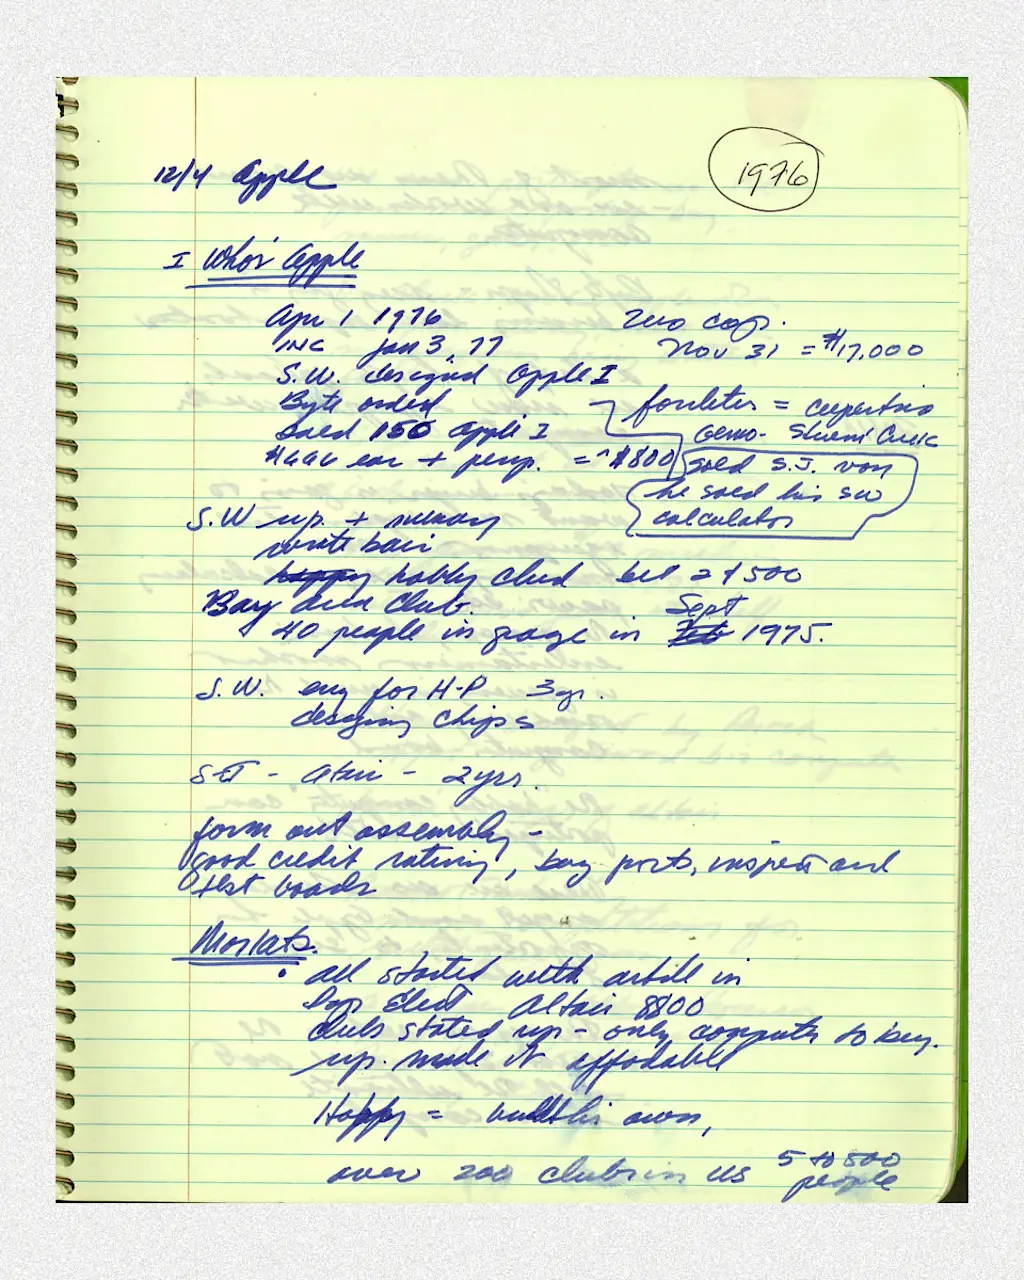 1976
12/4 Apple
I Who's Apple
Apr 1 1976
INC Jan 3, 77
S.W. designed Apple I
Byte orded
Soed 150 Apple I
ea + = ~$800
zero cap.
Nov 31 = $17,000
= Cupertino
Stevens Creek
Sold S.J. van
he soed his SW
calculator
S.W up. + memory
wrote basic
hobby club bet 2 + 500
Bay area Club. Sept
40 people in garage in 1975.
S.W. eng for H-P 3yr.
designing chips
- Atari - 2yrs.
farm out assembly -
good credit rating, buy parts, inspect and
test boards
Markets.
• all started with article in
Pop Elect Altair 8800
clubs stated up - only computer to buy.
up. made it affodable
= built his own,
over 200 clubs in US 5 to 500
people